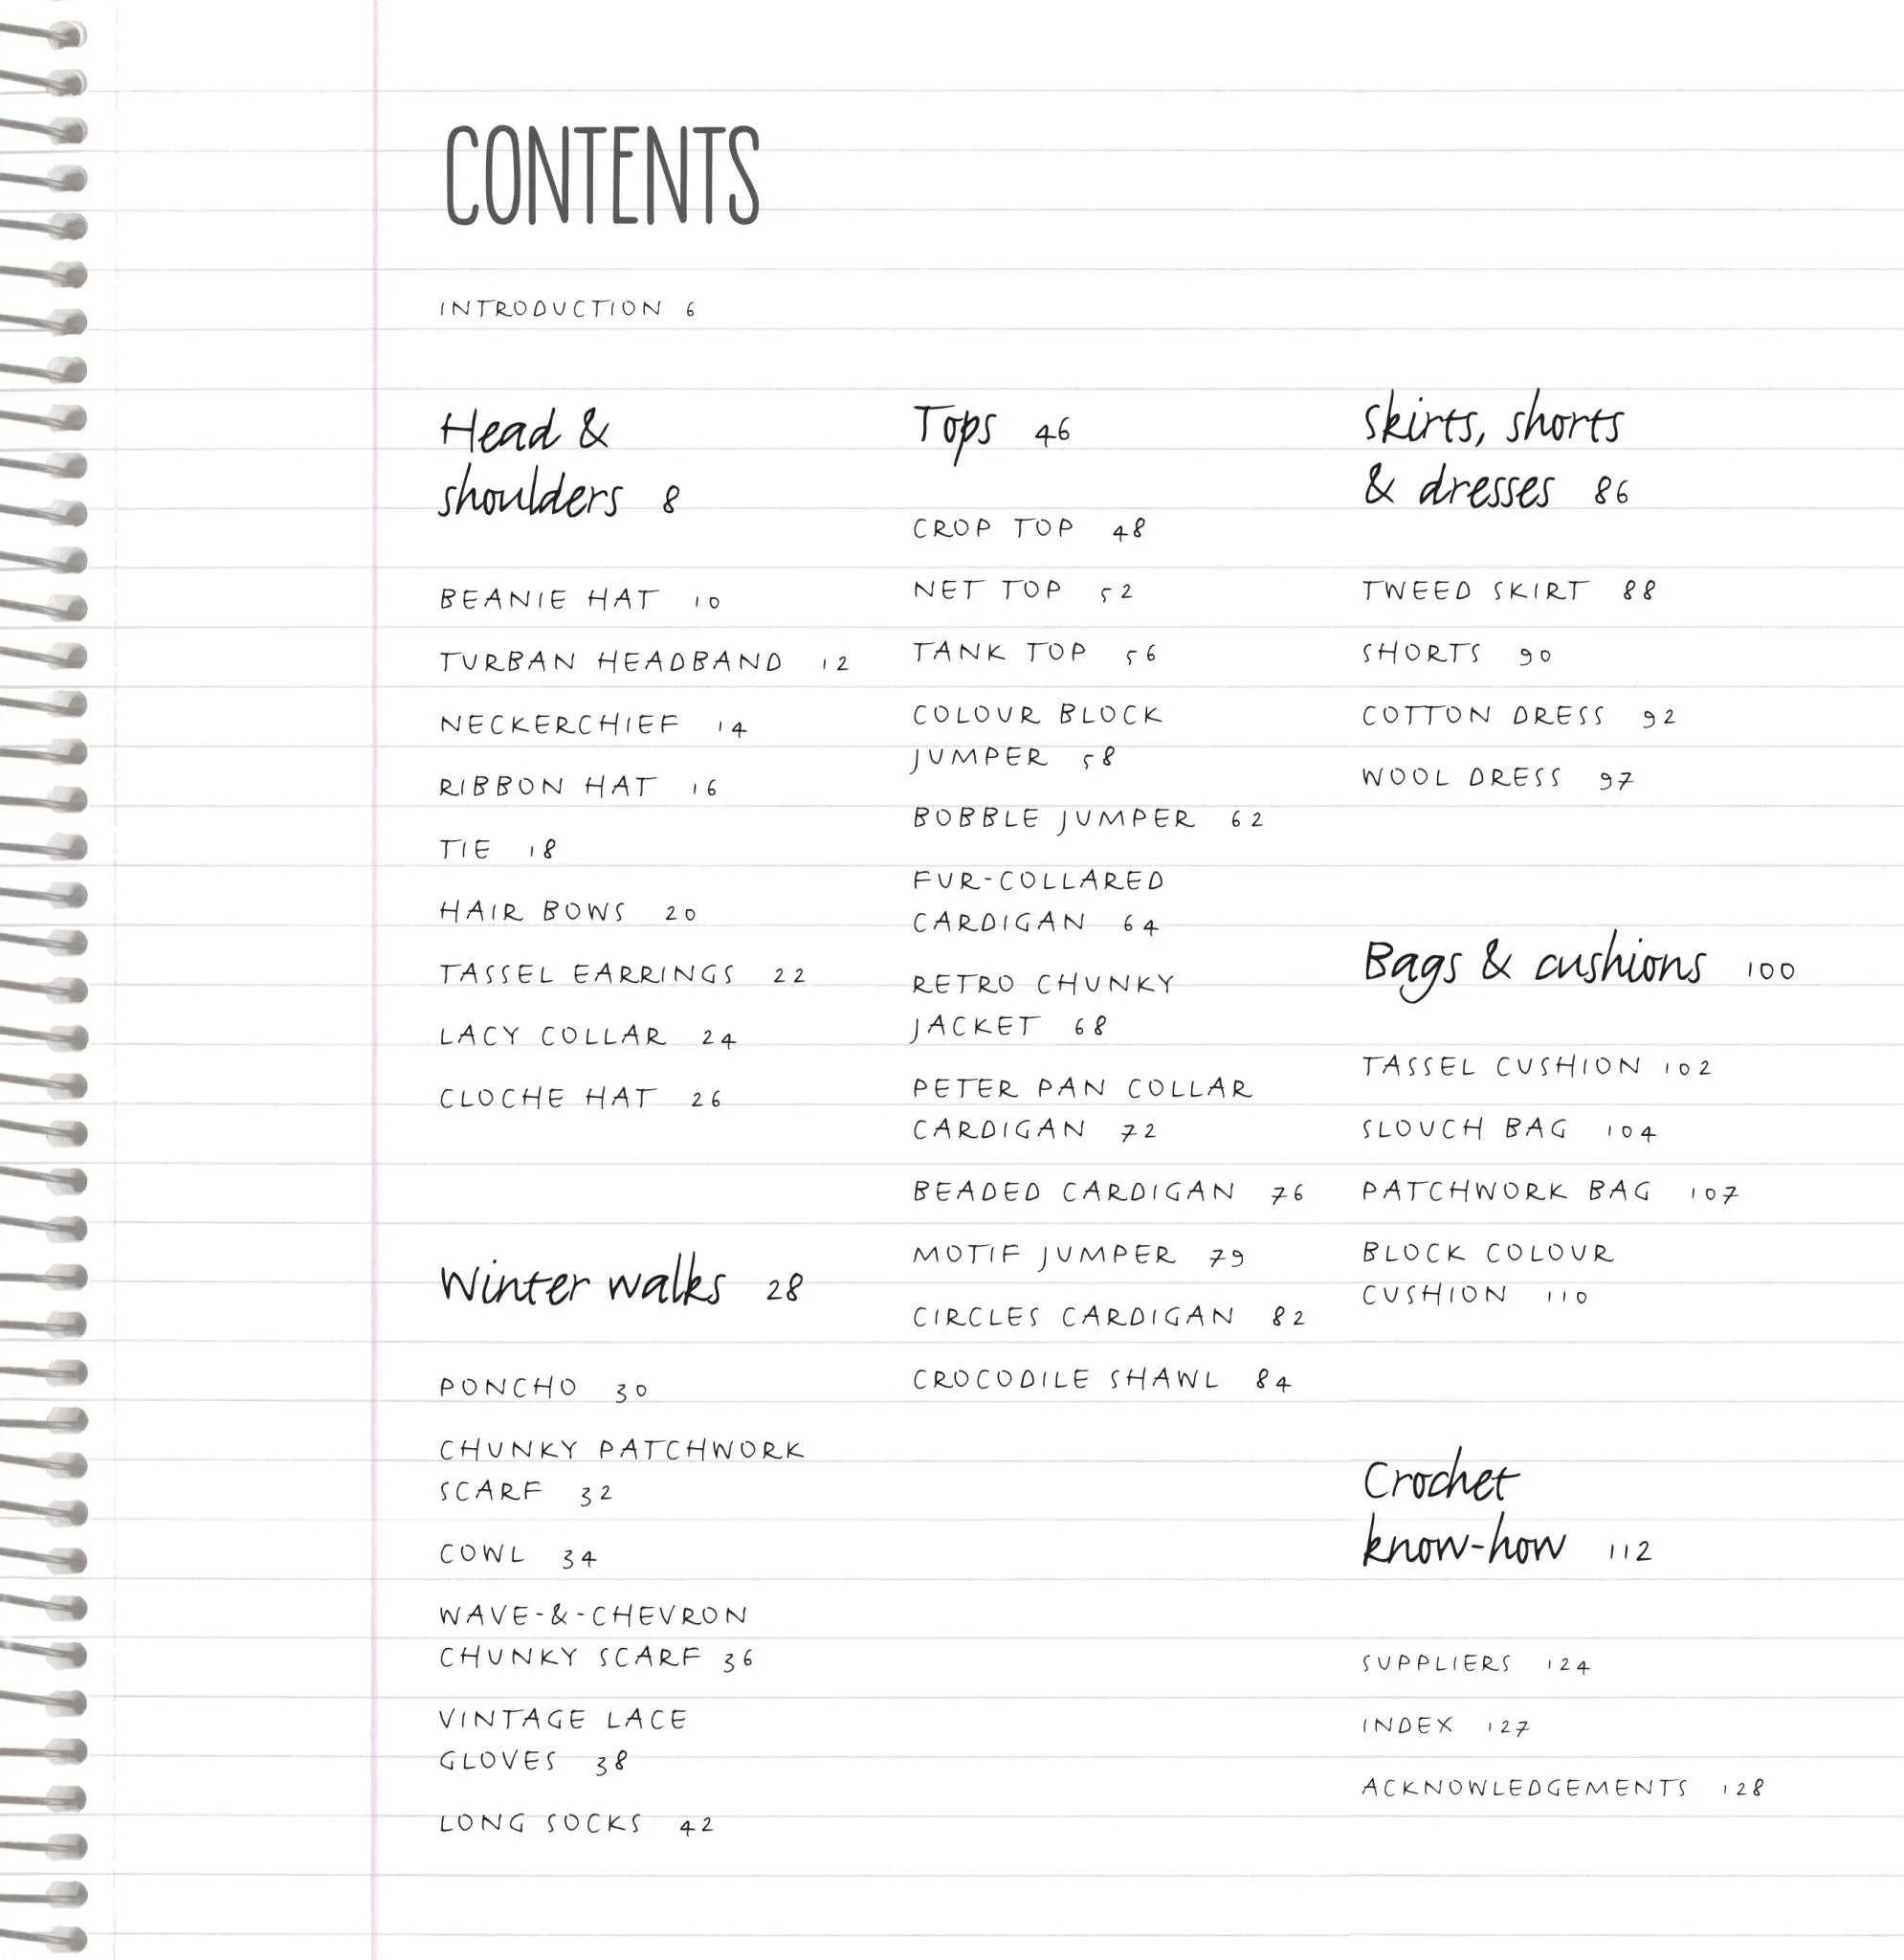 CONTENTS
INTRODUCTION 6
Head &
shoulders 8
BEANIE HAT 10
TURBAN HEADBAND 12
NECKERCHIEF 14
RIBBON HAT 16
TIE 18
HAIR BOWS 20
TASSEL EARRINGS 22
LACY COLLAR 24
CLOCHE HAT 26
Winter walks 28
PONCHO 30
CHUNKY PATCHWORK
SCARF 32
COWL 34
WAVE-&-CHEVRON
CHUNKY SCARF 36
VINTAGE LACE
GLOVES 38
LONG SOCKS 42
Tops 46
CROP TOP 48
NET TOP 52
TANK TOP 56
COLOUR BLOCK
JUMPER 58
BOBBLE JUMPER 62
FUR-COLLARED
CARDIGAN 64
RETRO CHUNKY
JACKET 68
PETER PAN COLLAR
CARDIGAN 72
BEADED CARDIGAN 76
MOTIF JUMPER 79
CIRCLES CARDIGAN 82
CROCODILE SHAWL 84
Skirts, shorts
& dresses 86
TWEED SKIRT 88
SHORTS 90
COTTON DRESS 92
WOOL DRESS 97
Bags & cushions 100
TASSEL CUSHION 102
SLOUCH BAG 104
PATCHWORK BAG 107
BLOCK COLOUR
CUSHION 110
Crochet
know-how 112
SUPPLIERS 124
INDEX 127
ACKNOWLEDGEMENTS 128